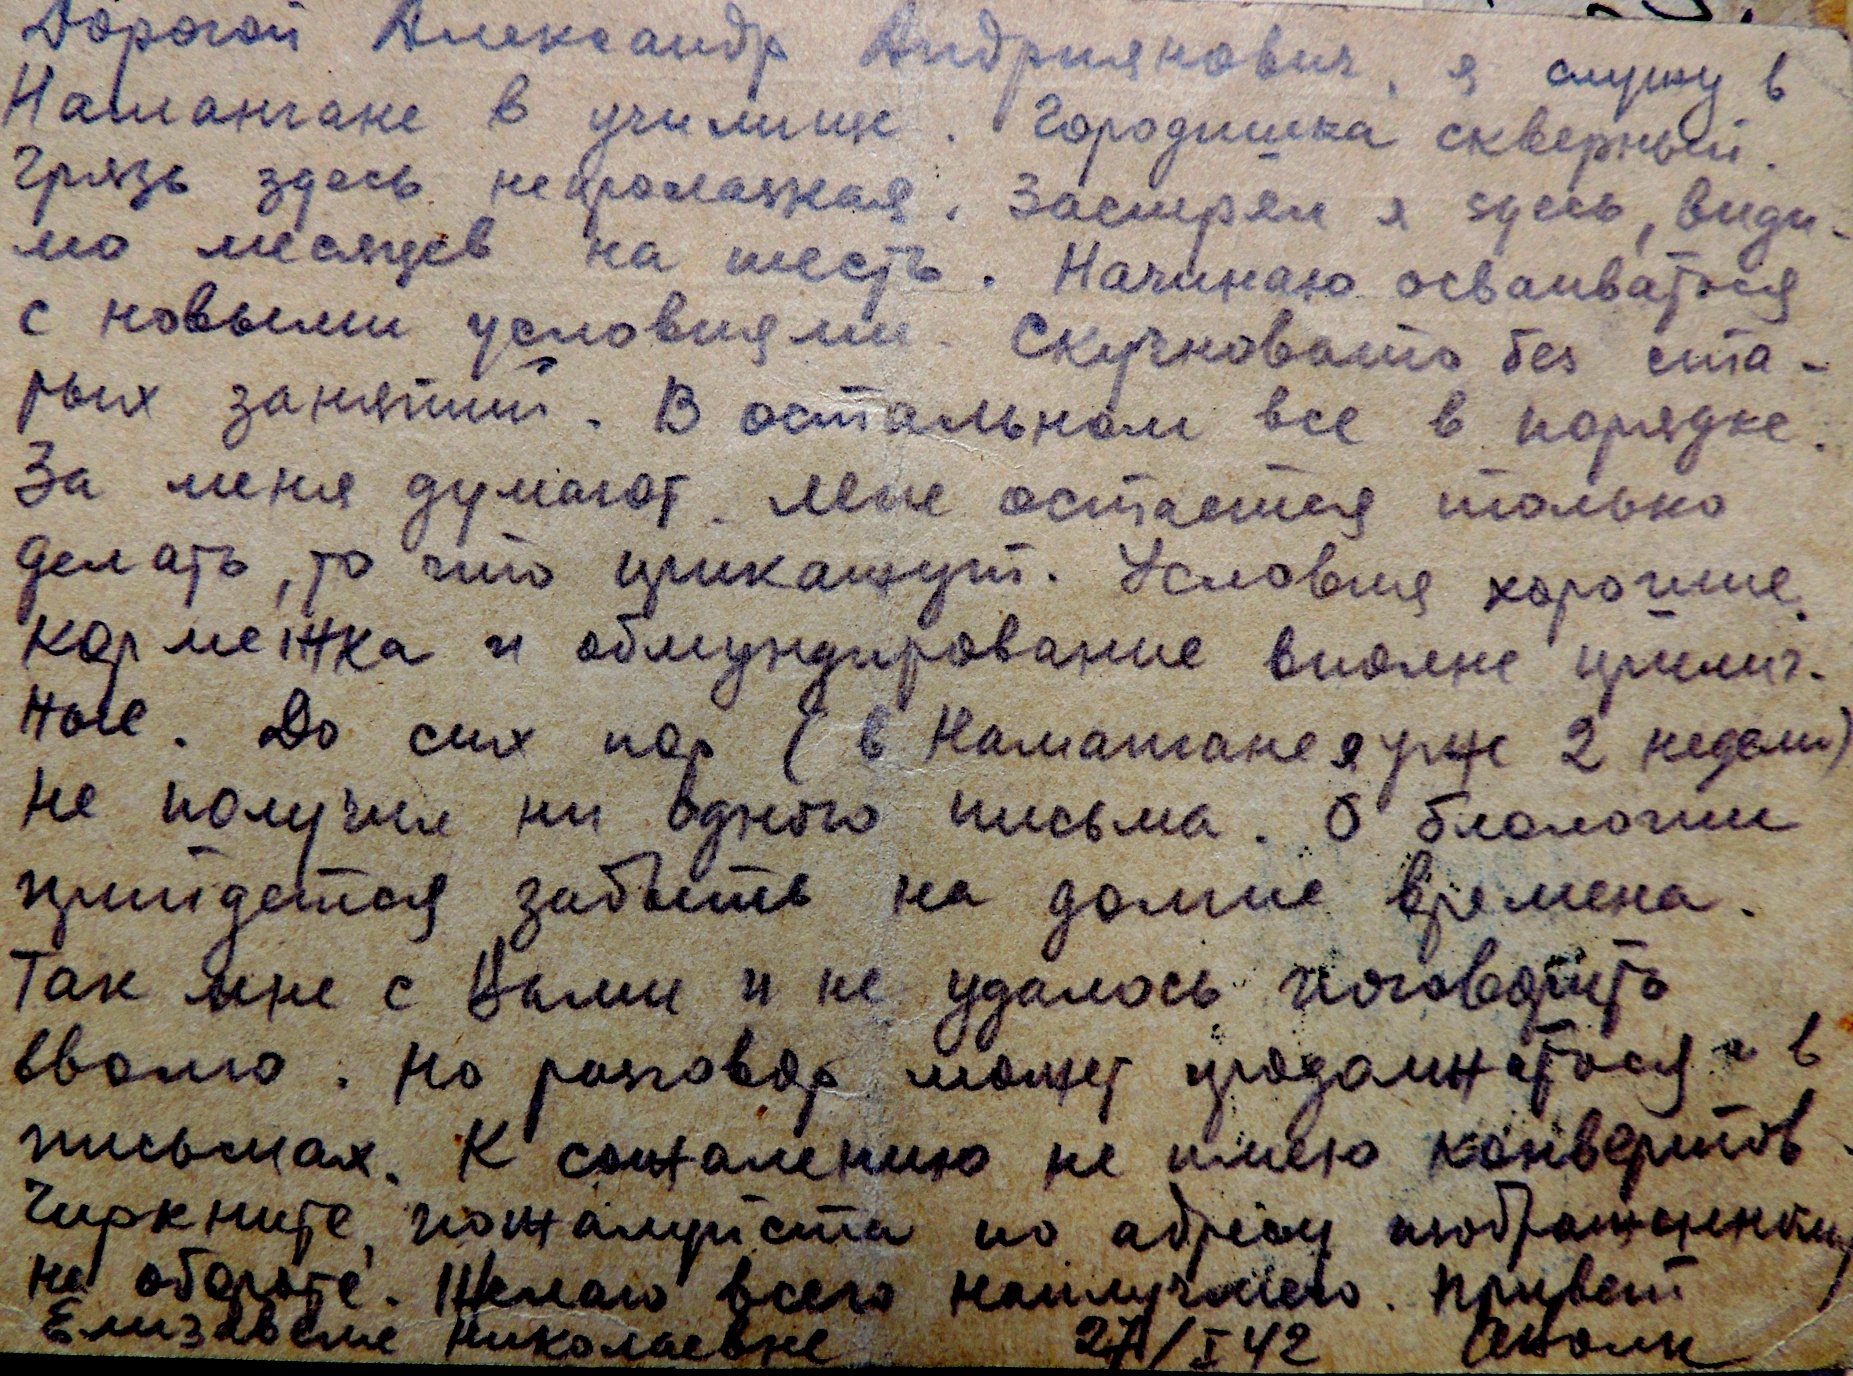 Дорогой Александр Андриянович, я служу в
Намангане в училище. Городишка скверный.
Грязь здесь непролазная. Застрял я здесь, види-
мо месяцев на шесть. Начинаю осваиваться
с новыми условиями. Скучновато без ста-
рых занятий. В остальном все в порядке.
За меня думают. Мне остается только
делать, то что прикажут. Условия хорошие.
Кормежка и обмундирование вполне прилич-
ные. До сих пор (в Намангане я уже 2 недели)
не получил ни одного письма. О биологии
прийдется забыть на долгие времена.
Так мне с Вами и не удалось поговорить
вволю. Но разговор может продолжаться и в
письмах. К сожалению не имею конвертов.
Чиркните, пожалуйста по адресу изображенному
на обороте. Желаю всего наилучшего. Привет
Елизавете Николаевне 27/I 42